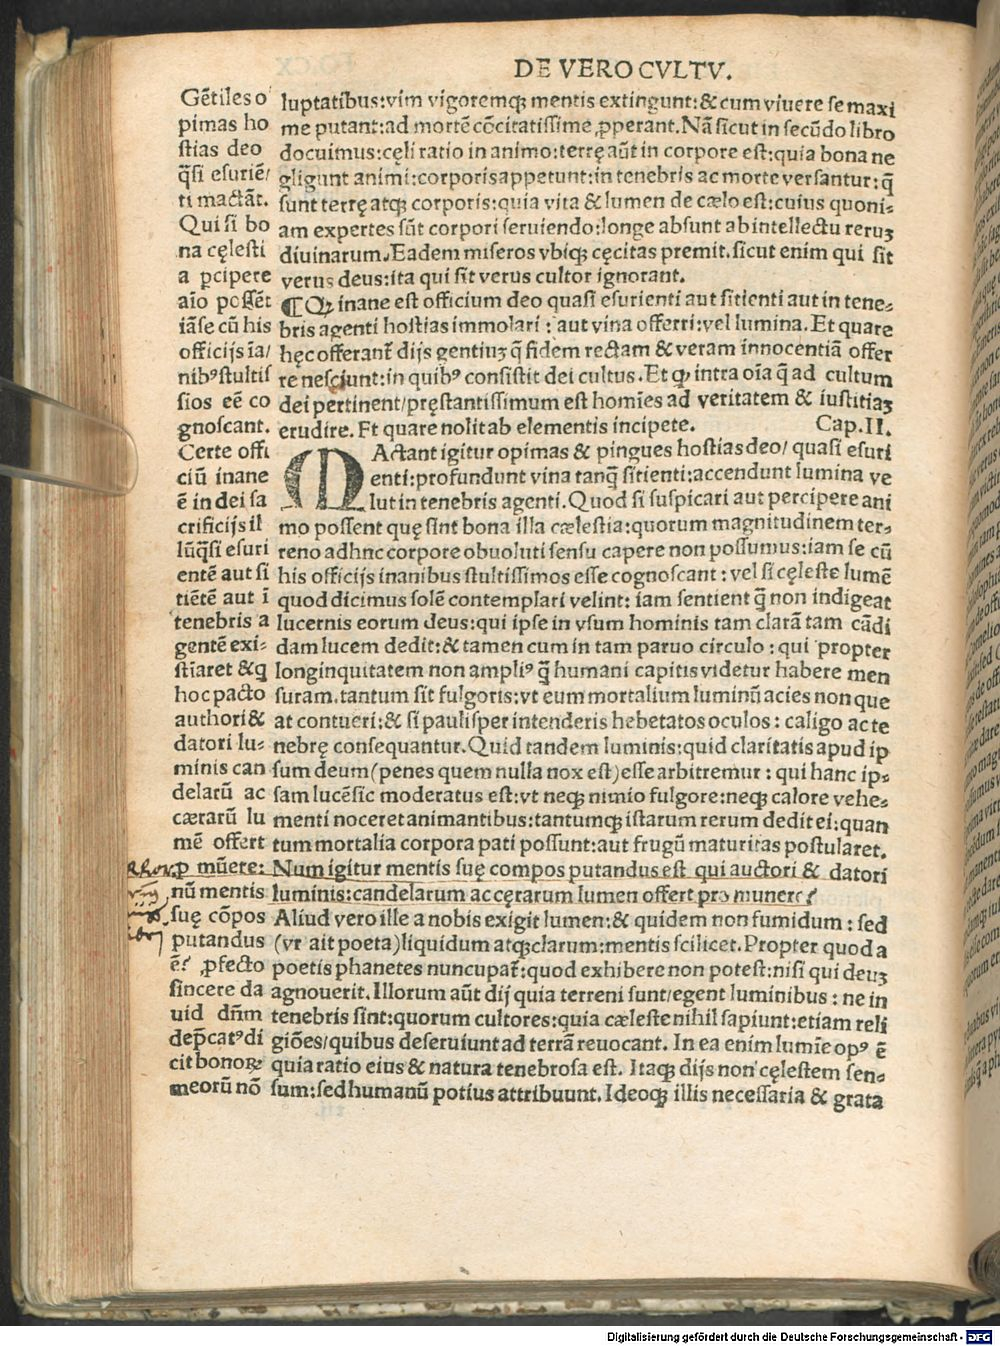 DE VERO CVLTV.
Gētiles o
pimas ho
stias deo
q̄si esuriē/
ti mactāt.
Qui si bo
na cęlesti
a pcipere
aīo possēt
iāse cū his
officijs īa/
nibꝰ stultis
sios eē co
gnoscant.
Certe offi
ciū inane
ē in dei sa
crificijs il
lūq̄si esuri
entē aut si
tiētē aut ī
tenebris a
gentē exi-
stiaret &q
hoc pacto
authori &
datori lu-
minis can
delarū ac
cærarū lu
mē offert
ꝓ mūere:
nū mentis
suę cōpos
putandus
ē? ꝓfecto
sincere da
uid dn̄m
dep̄catꝰ di
cit bonoꝝ
meorū nō
luptatibus:vim vigoremqꝫ mentis extingunt:& cum viuere se maxi
me putant:ad mortē cōcitatissime ꝓperant.Nā sicut in secūdo libro
docuimus:cęli ratio in animo:terrę aūt in corpore est:quia bona ne
gligunt animi:corporis appetunt:in tenebris ac morte versantur:q̄
sunt terrę atqꝫ corporis:quia vita & lumen de cælo est:cuius quoni-
am expertes sūt corpori seruiendo:longe absunt ab intellectu reruꝫ
diuinarum.Eadem miseros vbiqꝫ cęcitas premit.sicut enim qui sit
verus deus:ita qui sit verus cultor ignorant.
¶Qꝫ inane est officium deo quasi esurienti aut sitienti aut in tene-
bris agenti hostias immolari : aut vina offerri:vel lumina.Et quare
hęc offerant᷑ dijs gentiuꝫ q̄ fidem rectam & veram innocentiā offer
re nesciunt:in quibꝰ consistit dei cultus.Et ꝙ intra oīa q̄ ad cultum
dei pertinent/pręstantissimum est homīes ad veritatem & iustitiaꝫ
erudire. Et quare nolit ab elementis incipete. Cap.II.
MActant igitur opimas & pingues hostias deo/ quasi esuri
enti:profundunt vina tanq̄ sitienti:accendunt lumina ve
lut in tenebris agenti.Quod si suspicari aut percipere ani
mo possent quę sint bona illa cælestia:quorum magnitudinem ter-
reno adhnc corpore obuoluti sensu capere non possumus:iam se cū
his officijs inanibus stultissimos esse cognoscant : vel si cęleste lumē
quod dicimus solē contemplari velint: iam sentient q̄ non indigeat
lucernis eorum deus:qui ipse in vsum hominis tam clarā tam cādi
dam lucem dedit:& tamen cum in tam paruo circulo : qui propter
longinquitatem non ampliꝰ q̄ humani capitis videtur habere men
suram.tantum sit fulgoris:vt eum mortalium luminū acies non que
at contueri:& si paulisper intenderis hebetatos oculos : caligo ac te
nebrę consequantur.Quid tandem luminis:quid claritatis apud ip
sum deum(penes quem nulla nox est)esse arbitremur : qui hanc ip-
sam lucēsic moderatus est:vt neqꝫ nimio fulgore:neqꝫ calore vehe-
menti noceret animantibus:tantumqꝫ istarum rerum dedit ei:quan
tum mortalia corpora pati possunt:aut frugū maturitas postularet.
Num igitur mentis suę compos putandus est qui auctori & datori
luminis:candelarum accęrarum lumen offert pro munere?
Aliud vero ille a nobis exigit lumen:& quidem non fumidum : sed
(vt ait poeta)liquidum atqꝫclarum:mentis scilicet.Propter quod a
poetis phanetes nuncupat᷑:quod exhibere non potest:nisi qui deuꝫ
agnouerit.Illorum aūt dij quia terreni sunt/egent luminibus : ne in
tenebris sint:quorum cultores:quia cæleste nihil sapiunt:etiam reli
giōes/quibus deseruiunt ad terrā reuocant. In ea enim lumīe opꝰ ē
quia ratio eius & natura tenebrosa est. Itaqꝫ dijs non cęlestem sen-
sum:sed humanū potius attribuunt.Ideoqꝫ illis necessaria & grata
Digitalisierung gefördert durch die Deutsche Forschungsgemeinschaft - DFG